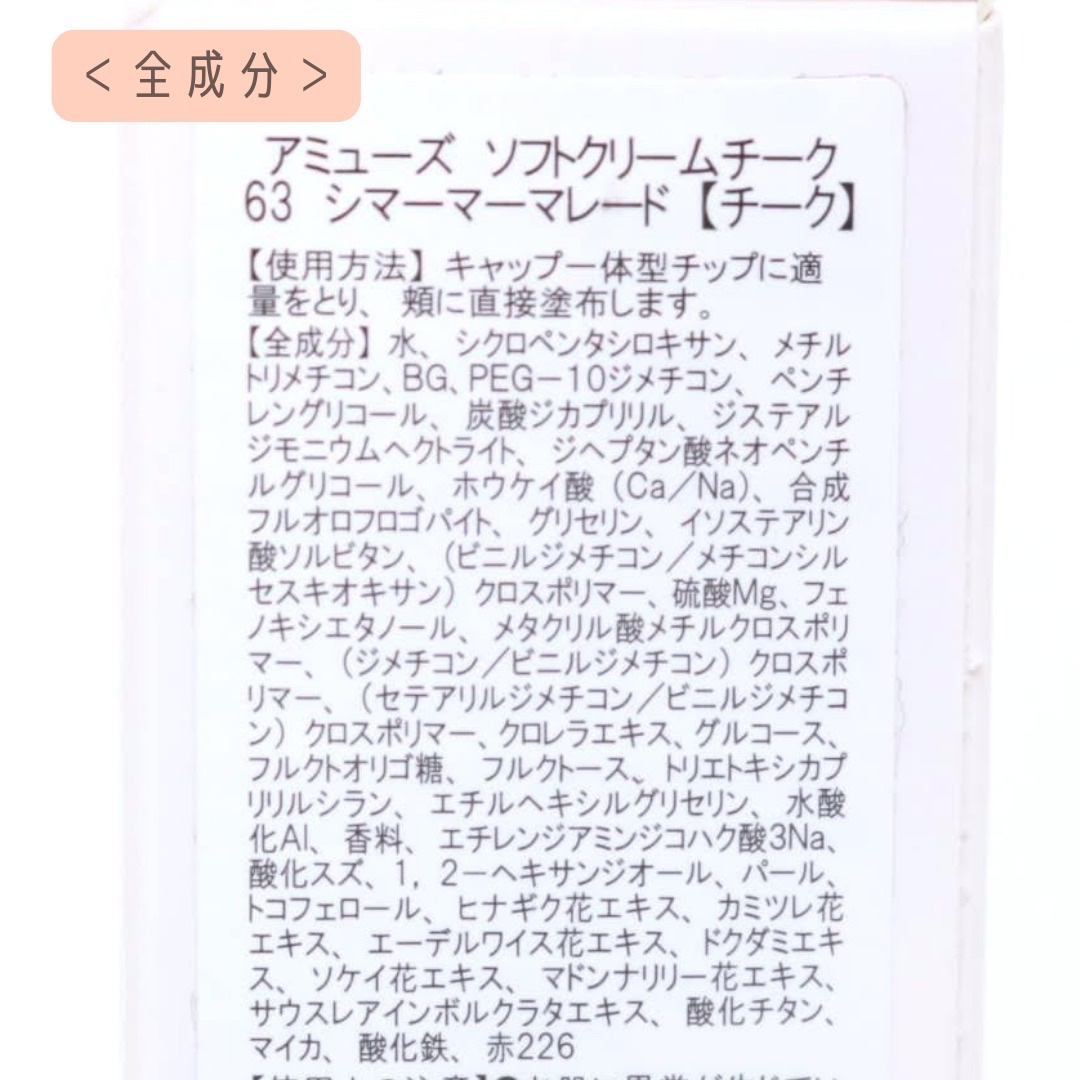 ＜全成分＞
アミューズ ソフトクリームチーク
63 シマーマーマレード【チーク】
【使用方法】キャップ一体型チップに適
量をとり、頬に直接塗布します。
【全成分】水、シクロペンタシロキサン、メチル
トリメチコン、BG、PEG－10ジメチコン、ペンチ
レングリコール、炭酸ジカプリリル、ジステアル
ジモニウムヘクトライト、ジヘプタン酸ネオペンチ
ルグリコール、ホウケイ酸（Ca／Na）、合成
フルオロフロゴパイト、グリセリン、イソステアリン
酸ソルビタン、（ビニルジメチコン／メチコンシル
セスキオキサン）クロスポリマー、硫酸Mg、フェ
ノキシエタノール、メタクリル酸メチルクロスポリ
マー、（ジメチコン／ビニルジメチコン）クロスポ
リマー、（セテアリルジメチコン／ビニルジメチコ
ン）クロスポリマー、クロレラエキス、グルコース、
フルクトオリゴ糖、フルクトース、トリエトキシカプ
リリルシラン、エチルヘキシルグリセリン、水酸
化Al、香料、エチレンジアミンジコハク酸3Na、
酸化スズ、1，2－ヘキサンジオール、パール、
トコフェロール、ヒナギク花エキス、カミツレ花
エキス、エーデルワイス花エキス、ドクダミエキ
ス、ソケイ花エキス、マドンナリリー花エキス、
サウスレアインボルクラタエキス、酸化チタン、
マイカ、酸化鉄、赤226